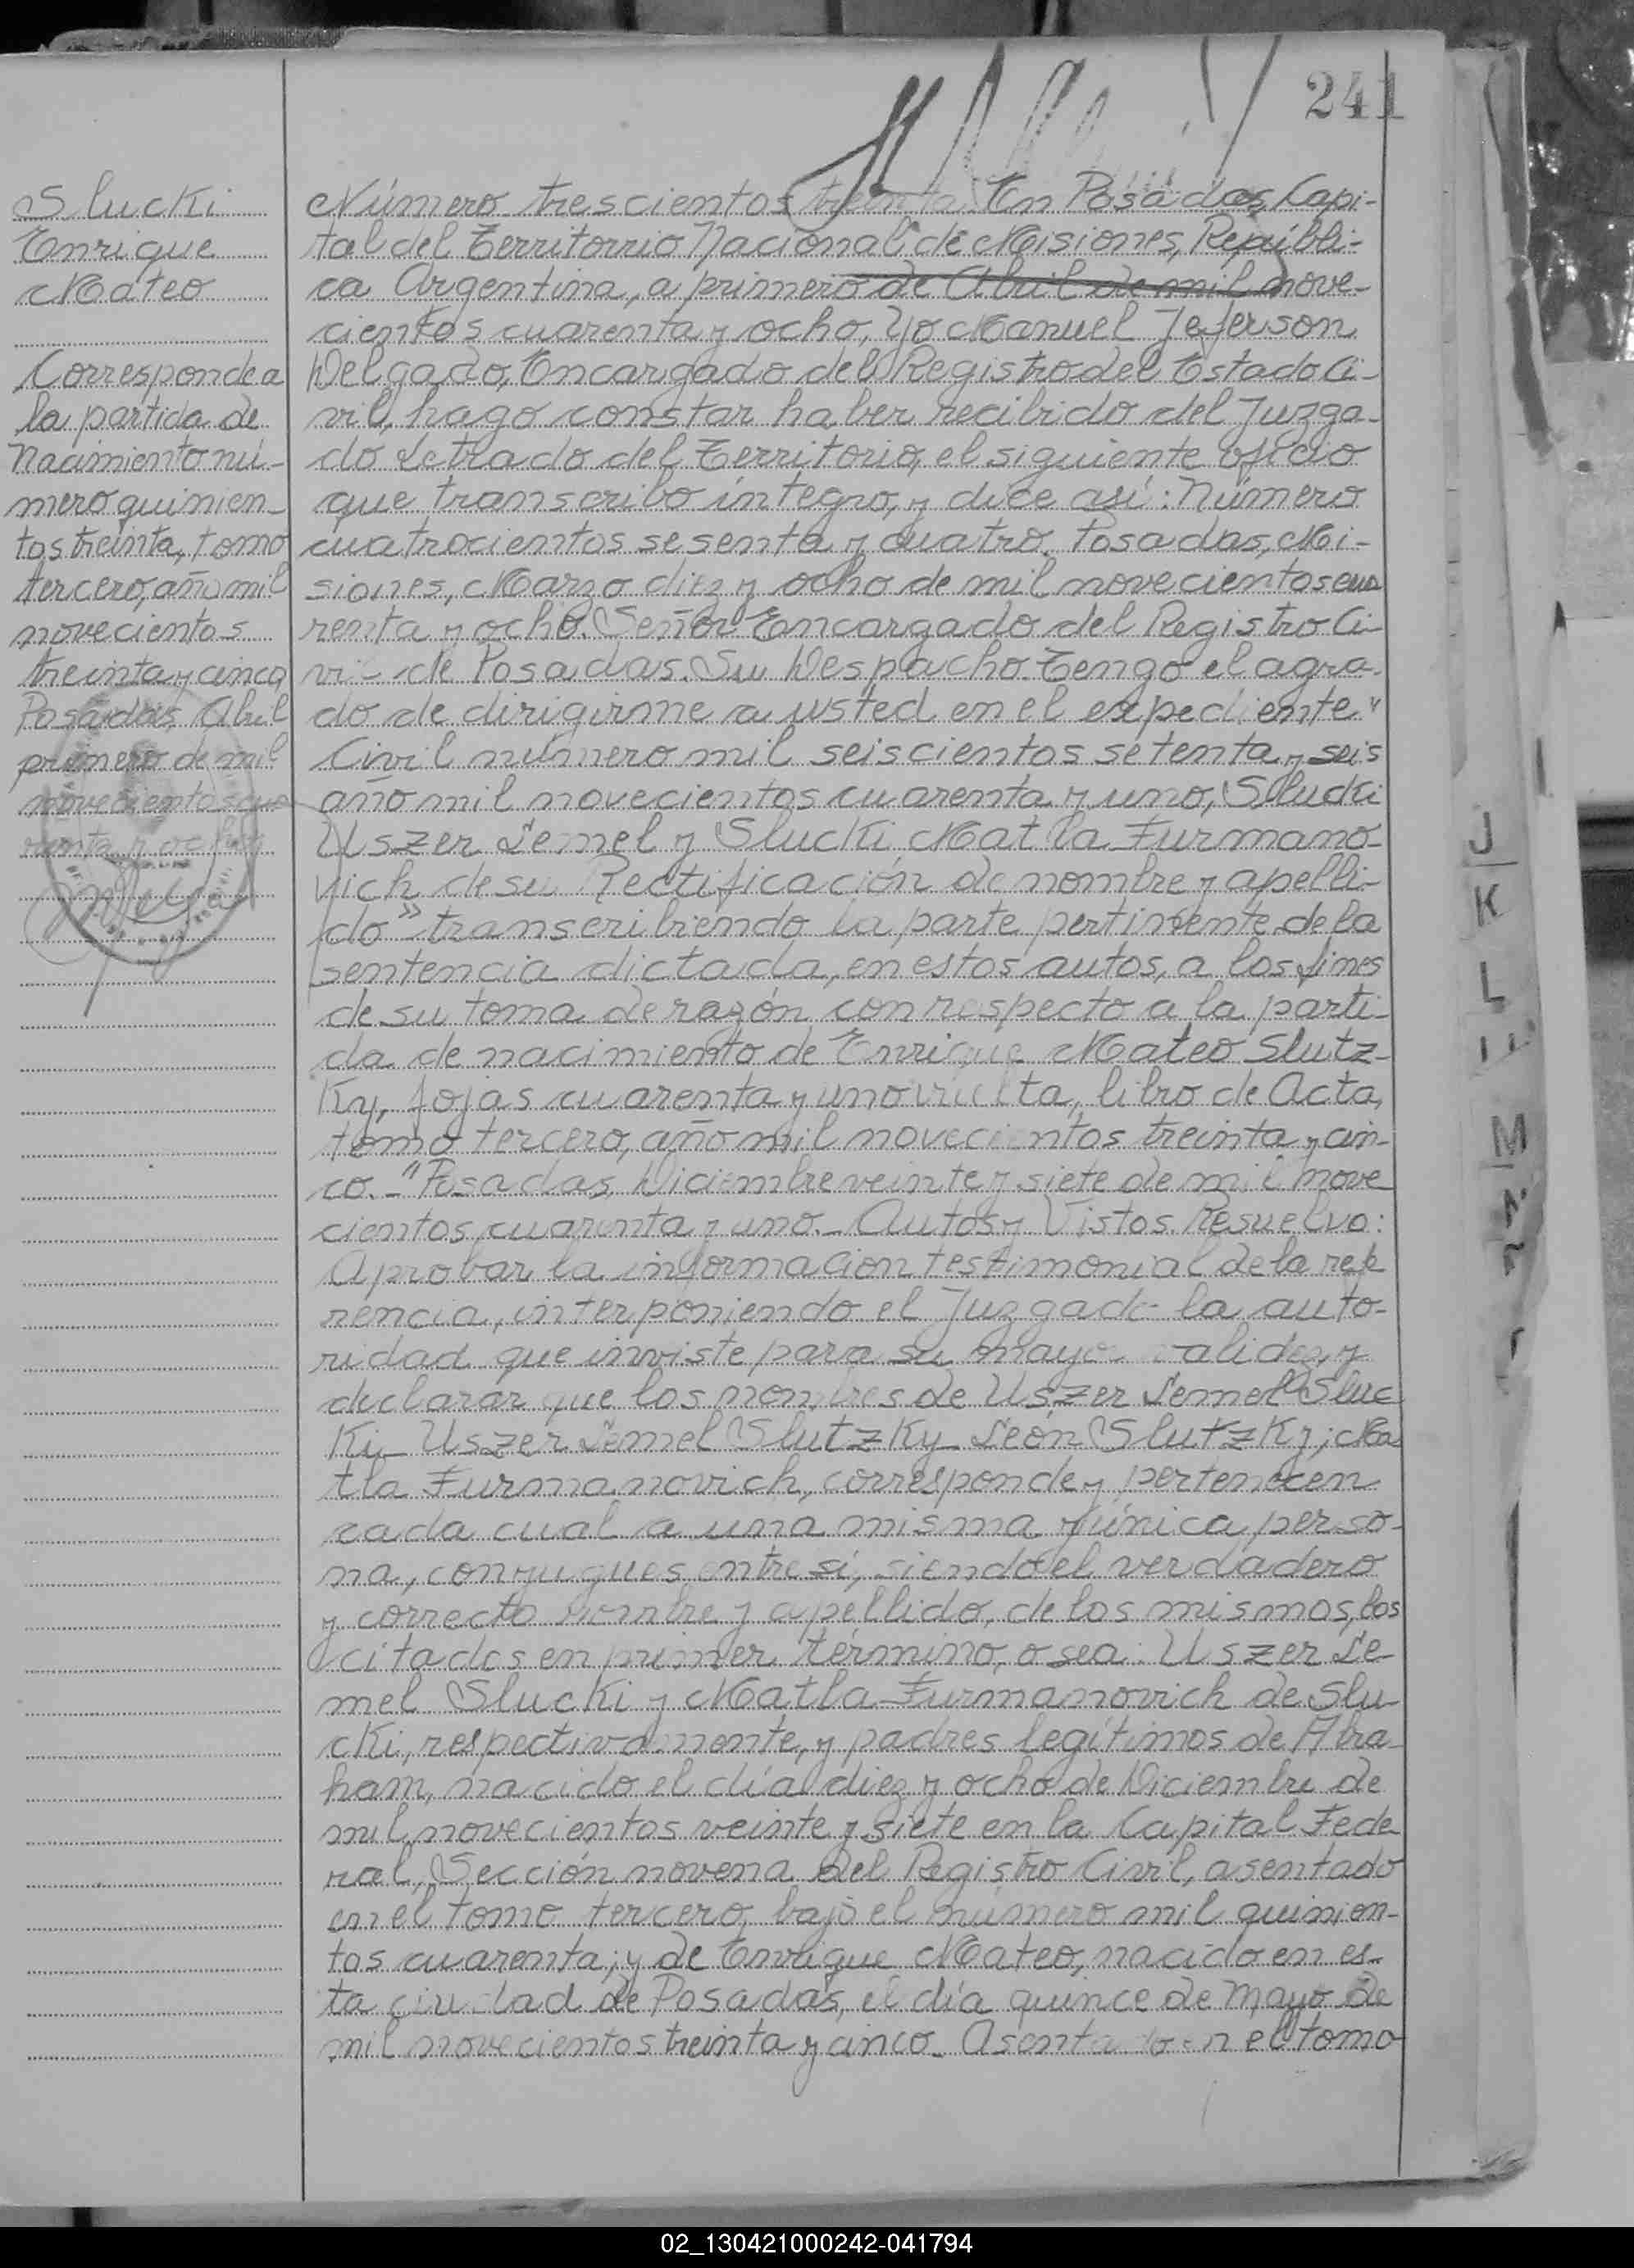 241
Slucki
Enrique
Mateo
Corresponde a
la partida de
Nacimiento nú-
mero quinien-
tos treinta, tomo
tercero, año mil
novecientos
treinta y cinco
Posadas, Abril
primero de mil
novecientos cua-
renta y ocho
Número trescientos treinta En Posadas, Capi-
tal del Territorrio Nacional de Misiones, Repúbli-
ca Argentina, a primero de Abril de mil nove-
cientos cuarenta y ocho, Yo Manuel Jeferson
Delgado, Encargado del Registro del Estado Ci-
vil, hago constar haber recibido del Juzga-
do Letrado del Territorio, el siguiente oficio
que transcribo íntegro, y dice así: Número
cuatrocientos sesenta y cuatro. Posadas, Mi-
siones, Marzo diez y ocho de mil novecientos cua
renta y ocho. Señor Encargado del Registro Ci-
vil de Posadas. Su Despacho. Tengo el agra-
do de dirigirme a usted en el expediente "
Civil número mil seiscientos setenta y seis
año mil novecientos cuarenta y uno, Slucki
Uszer Lemel y Slucki Matla Furmano-
vich de su Rectificación de nombre y apelli-
do" transcribiendo la parte pertinente de la
sentencia dictada, en estos autos, a los fines
de su toma de razón con respecto a la parti-
da de nacimiento de Enrique Mateo Slutz-
Ky, fojas cuarenta y uno vuelta, libro de Acta,
tomo tercero, año mil novecientos treinta y cin-
co. - "Posadas, Diciembre veinte y siete de mil nove
cientos cuarenta y uno. - Autos y Vistos. Resuelvo:
Aprobar la informacion testimonial de la
rencia, interponiendo el Juzgado la auto-
ridad que inviste para su mayor validez, y
declarar que los nombres de Uszer Lemel Sluc
Ki_ Uszer Lemel Slutzky_ León Slutzky; Ma
tla Furmanovich, corresponde y pertenecen
cada cual a una misma y única perso-
na, conyugues entre sí, siendo el verdadero
y correcto nombre y apellido, de los mismos, los
citados en primer término, o sea: Uszer Le-
mel Slucki y Matla Furmanovich de Slu-
cKi, respectivamente, y padres legítimos de Abra-
ham, nacido el día diez y ocho de Diciembre de
mil novecientos veinte y siete en la Capital Fede
ral, Sección novena del Registro Civil, asentado
en el tomo tercero, bajo el número mil quinien-
tos cuarenta; y de Enrique Mateo, nacido en es-
ta ciudad de Posadas, el día quince de Mayo de
mil novecientos treinta y cinco_ Asentado en el tomo
J
K
L
M
N
02_130421000242-041794